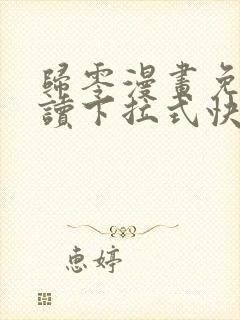 歸零漫畫免
讀下拉式快
惠婷